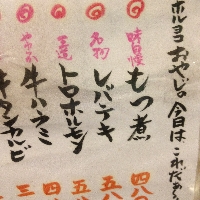 ホルヨコおやじの今日は、これだぁ
味自慢
もつ煮
四八
名物
レバテキ
五八
王道
トロホルモン
五
やわらか
牛ハラミ
キタンカルビ